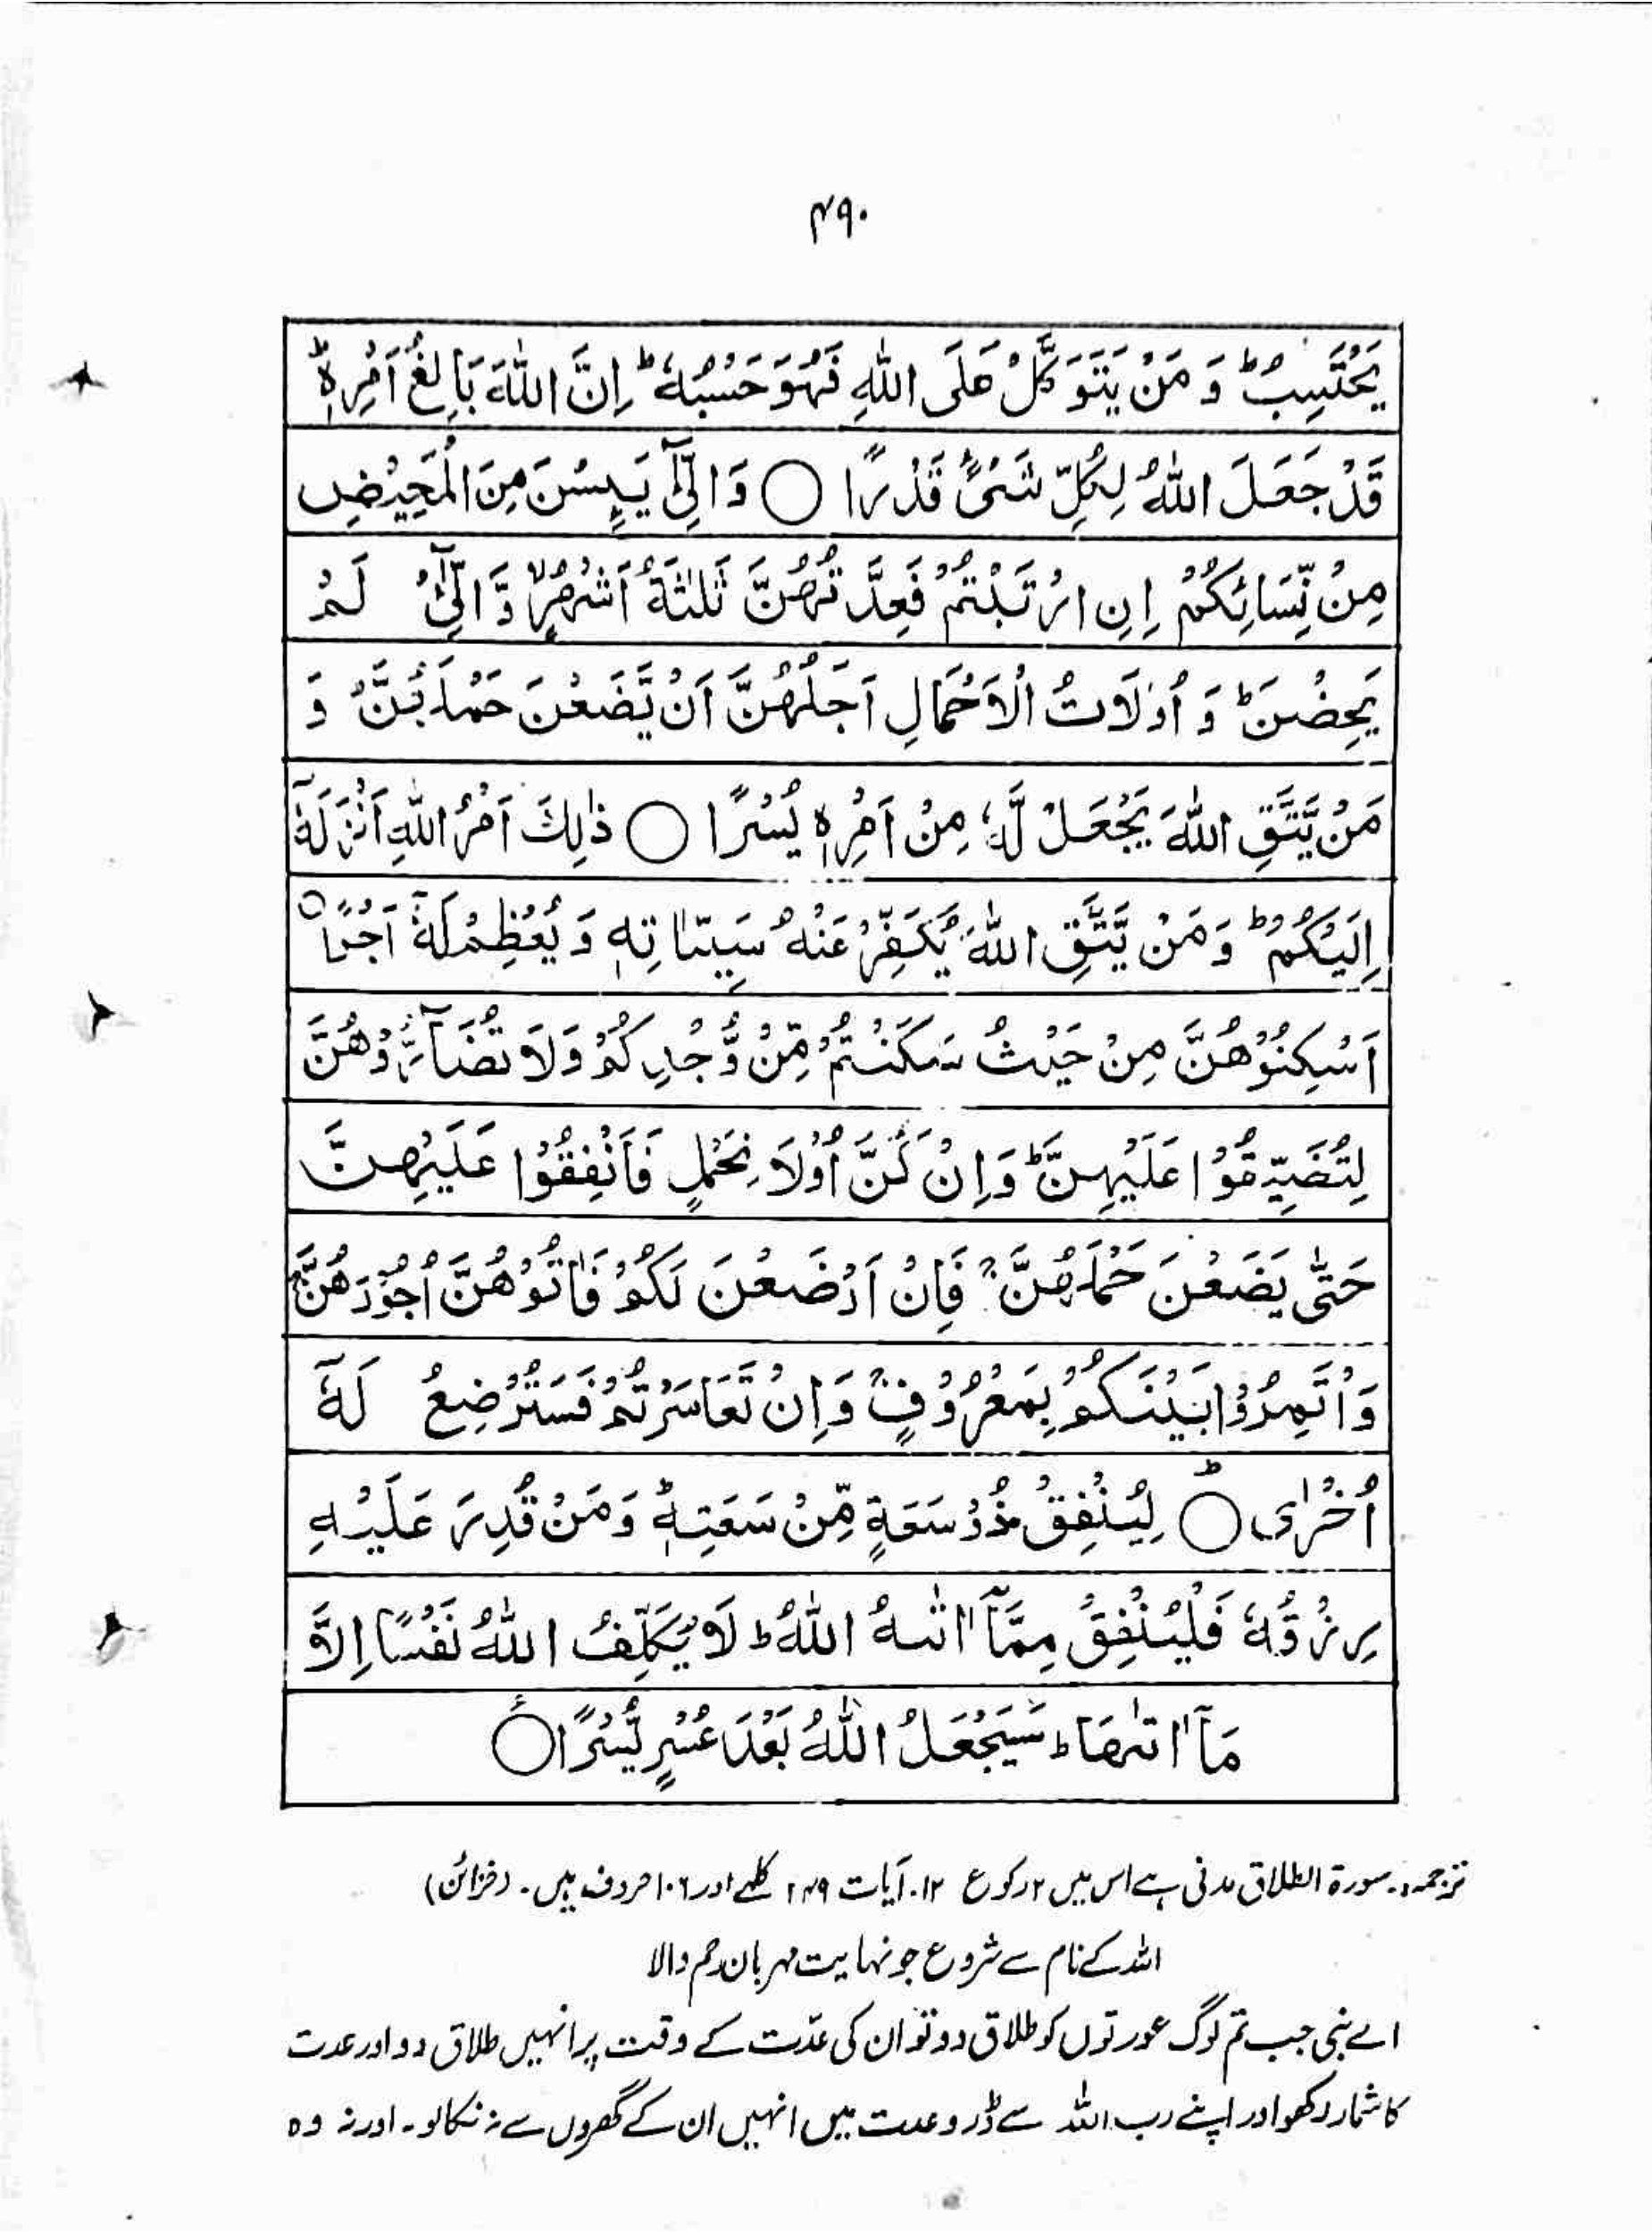 ۴۹۰
يَحْتَسِبُ ؕ وَ مَنْ يَّتَوَكَّلْ عَلَى اللّٰهِ فَهُوَ حَسْبُهٗ ؕ اِنَّ اللّٰهَ بَالِغُ اَمْرِهٖ ؕ
قَدْ جَعَلَ اللّٰهُ لِكُلِّ شَیْءٍ قَدْرًا ○ وَ الّٰٓـِٔیْ یَىِٕسْنَ مِنَ الْمَحِیْضِ
مِنْ نِّسَائِكُمْ اِنِ ارْتَبْتُمْ فَعِدَّتُهُنَّ ثَلٰثَةُ اَشْهُرٍ ۙ وَّ الّٰٓـِٔیْ لَمْ
یَحِضْنَ ؕ وَ اُولَاتُ الْاَحْمَالِ اَجَلُهُنَّ اَنْ یَّضَعْنَ حَمْلَهُنَّ ؕ وَ
مَنْ یَّتَّقِ اللّٰهَ یَجْعَلْ لَّهٗ مِنْ اَمْرِهٖ یُسْرًا ○ ذٰلِكَ اَمْرُ اللّٰهِ اَنْزَلَهٗۤ
اِلَیْكُمْ ؕ وَ مَنْ یَّتَّقِ اللّٰهَ یُكَفِّرْ عَنْهُ سَیِّاٰتِهٖ وَ یُعْظِمْ لَهٗۤ اَجْرًا ○
اَسْكِنُوْهُنَّ مِنْ حَیْثُ سَكَنْتُمْ مِّنْ وُّجْدِكُمْ وَ لَا تُضَآرُّوْهُنَّ
لِتُضَیِّقُوْا عَلَیْهِنَّ ؕ وَ اِنْ كُنَّ اُولَاتِ حَمْلٍ فَاَنْفِقُوْا عَلَیْهِنَّ
حَتّٰى یَضَعْنَ حَمْلَهُنَّ ۚ فَاِنْ اَرْضَعْنَ لَكُمْ فَاٰتُوْهُنَّ اُجُوْرَهُنَّ ۚ
وَ اْتَمِرُوْا بَیْنَكُمْ بِمَعْرُوْفٍ ۚ وَ اِنْ تَعَاسَرْتُمْ فَسَتُرْضِعُ لَهٗۤ
اُخْرٰى ○ؕ لِیُنْفِقْ ذُوْ سَعَةٍ مِّنْ سَعَتِهٖ ؕ وَ مَنْ قُدِرَ عَلَیْهِ
رِزْقُهٗ فَلْیُنْفِقْ مِمَّاۤ اٰتٰىهُ اللّٰهُ ؕ لَا یُكَلِّفُ اللّٰهُ نَفْسًا اِلَّا
مَاۤ اٰتٰىهَا ؕ سَیَجْعَلُ اللّٰهُ بَعْدَ عُسْرٍ یُّسْرًا ○
ترجمہ۔ سورۃ الطلاق مدنی ہے اس میں ۲ رکوع ۱۲۔ آیات ۲۴۹ کلمے اور ۱۰۶۰ حروف ہیں۔ (خزائن)
اللہ کے نام سے شروع جو نہایت مہربان رحم والا
اے نبی جب تم لوگ عورتوں کو طلاق دو تو ان کی عدّت کے وقت پر انہیں طلاق دو اور عدت
کا شمار رکھو اور اپنے رب اللہ سے ڈرو عدت میں انہیں ان کے گھروں سے نہ نکالو۔ اور نہ وہ